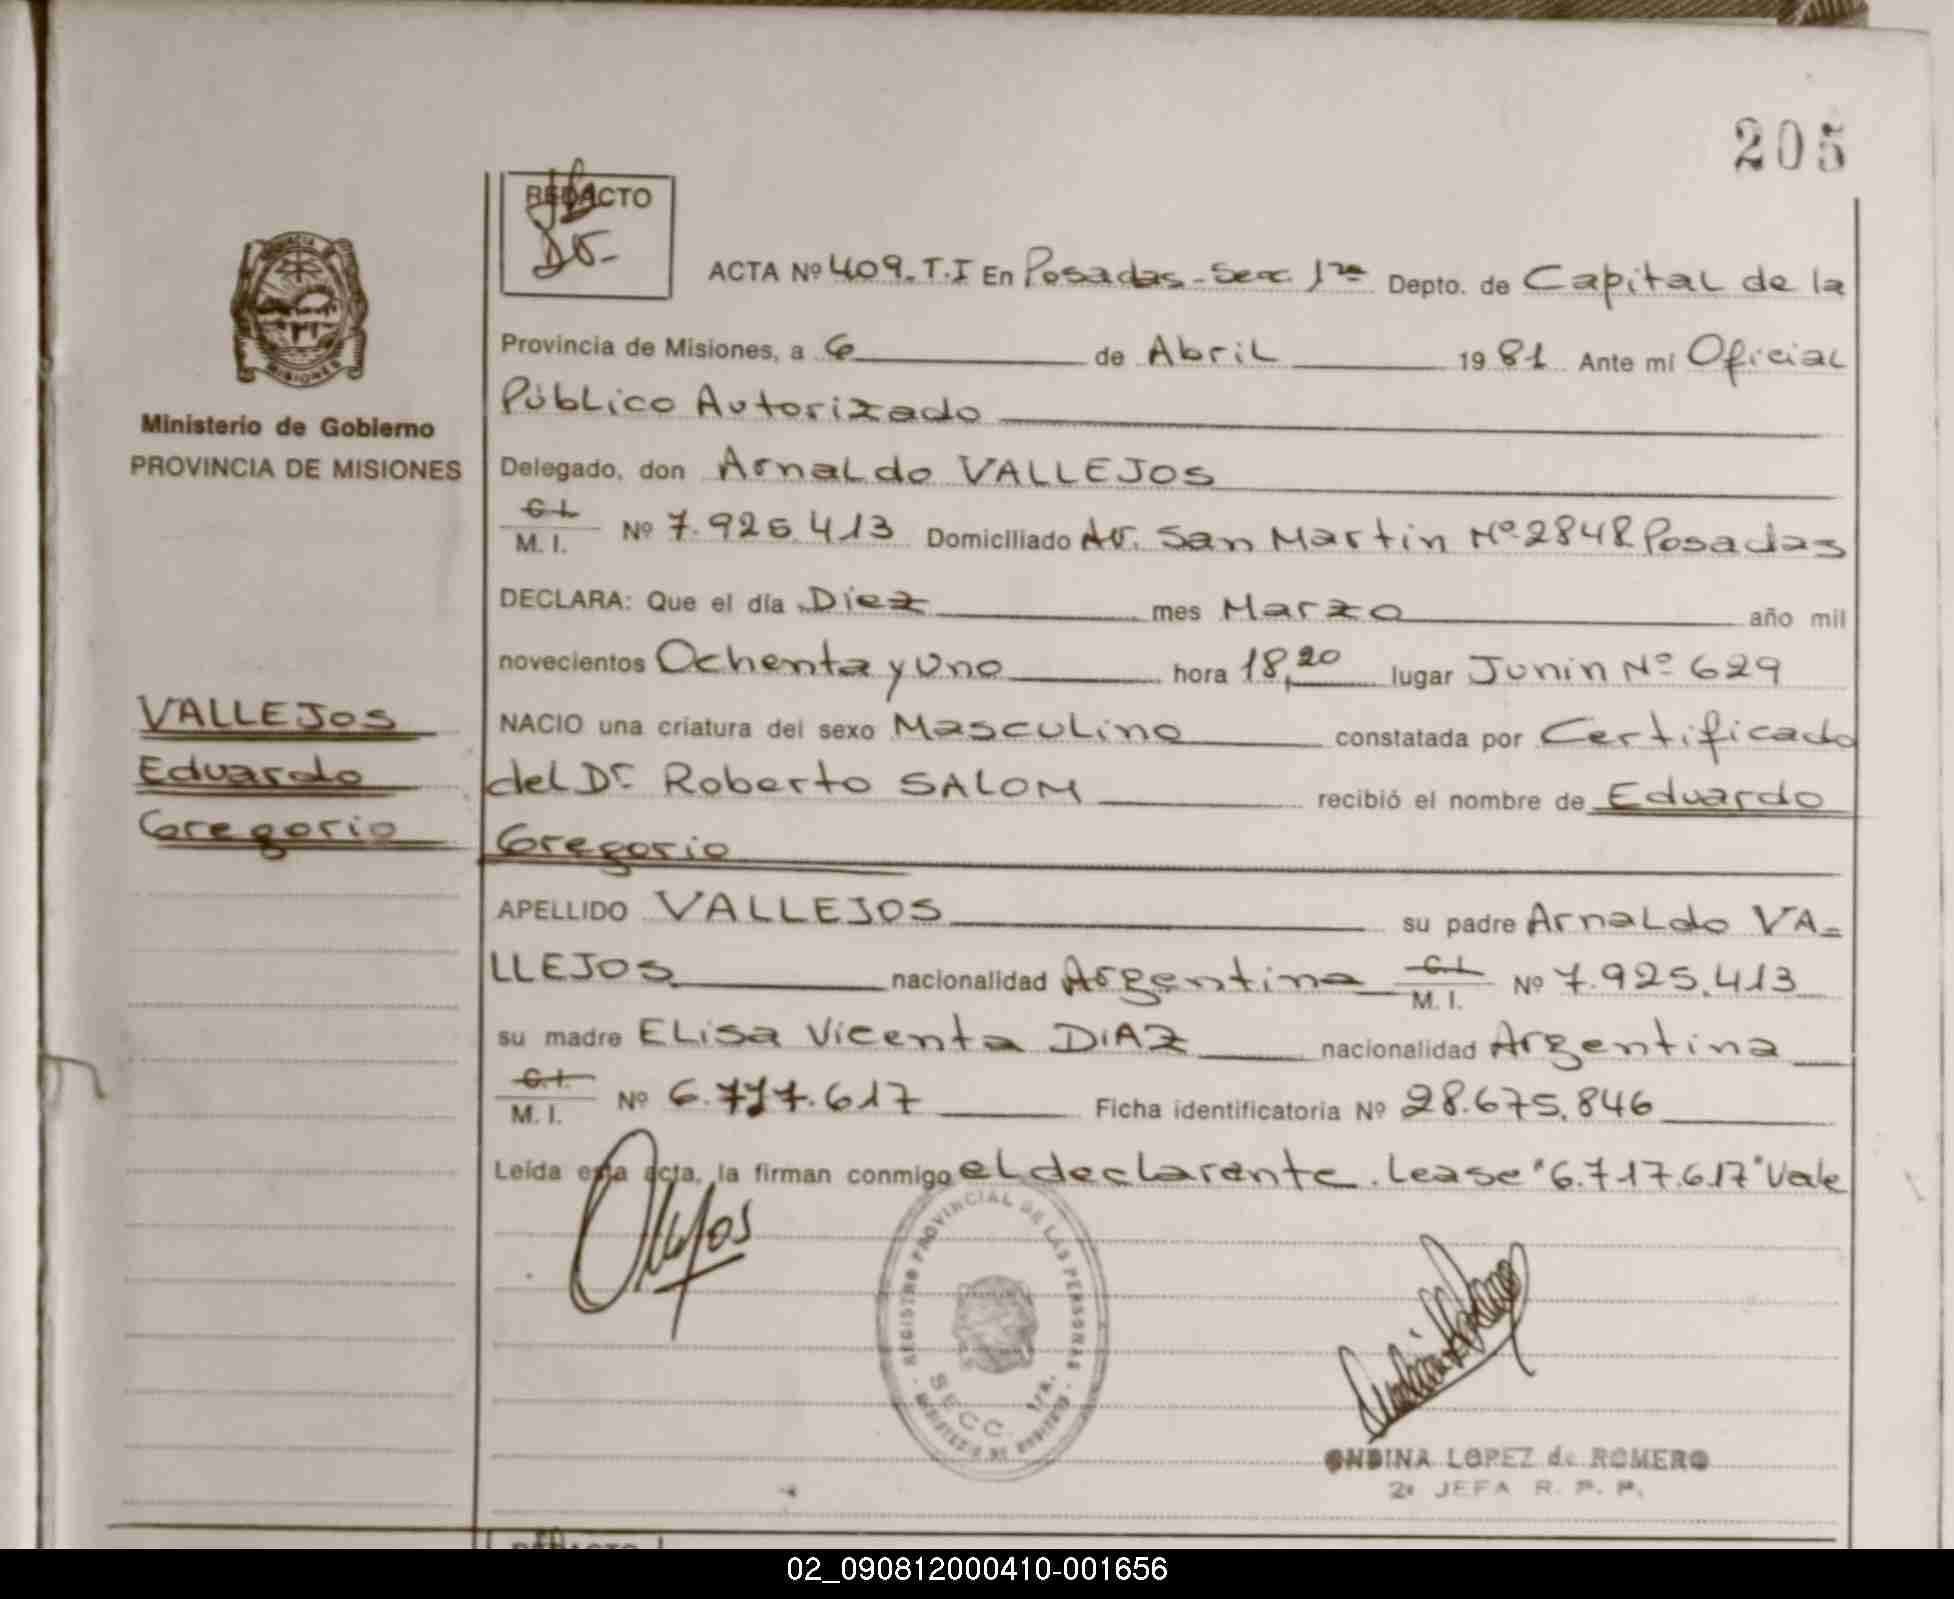 205
REDACTO
ACTA Nº 409.T.I En Posadas-Secc. 1ra Depto. de Capital de la
Provincia de Misiones, a 6 de Abril 1981 Ante mi Oficial
Público Autorizado
Ministerio de Gobierno
PROVINCIA DE MISIONES
Delegado, don Arnaldo VALLEJOS
C.I.
M. I. Nº 7.925.413 Domiciliado Av. San Martin Nº 2848 Posadas
DECLARA: Que el día Diez mes Marzo año mil
novecientos Ochenta y Uno hora 18,20 lugar Junin Nº 629
VALLEJOS
Eduardo
Gregorio
NACIO una criatura del sexo Masculino constatada por Certificado
del Dr. Roberto SALOM recibió el nombre de Eduardo
Gregorio
APELLIDO VALLEJOS su padre Arnaldo VA=
LLEJOS nacionalidad Argentina C.I. M. I. Nº 7.925.413
su madre ELisa Vicenta DIAZ nacionalidad Argentina
C.I.
M. I. Nº 6.777.617 Ficha identificatoria Nº 28.675.846
Leída esta acta, la firman conmigo el declarante. Lease "6.717.617" Vale
REGISTRO PROVINCIAL DE LAS PERSONAS
SECC. 1ra.
MINISTERIO DE GOBIERNO
ONDINA LOPEZ de ROMERO
2ª JEFA R. P. P.
REDACTO
02_090812000410-001656